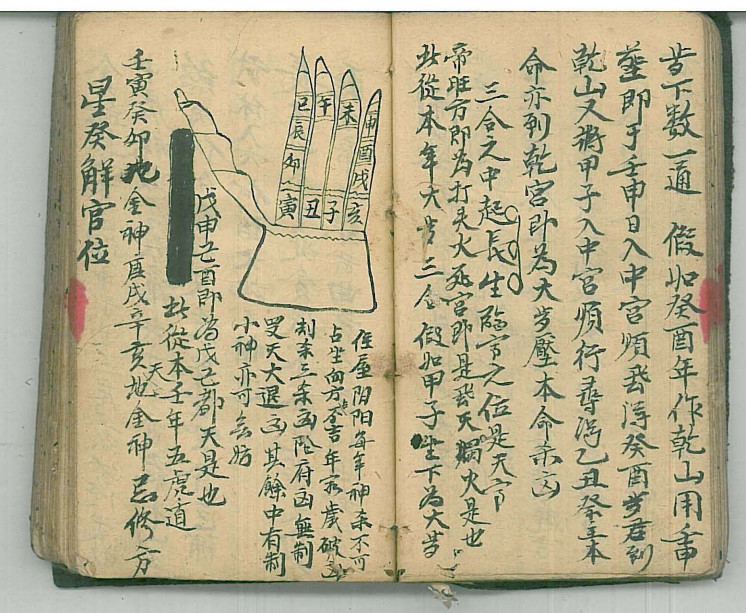 下数一通 假如癸酉年作乾山用
即于壬申日入中宮順飛浔癸酉岁君到
乾山又将甲子入中宮順行尋浔乙丑本
命亦到乾宮即為大岁壓本命亦凶
三合之中起長生臨官之位是天官
帝旺方即為打头火死宮即是飛天燭火是也
此從本年大岁三合 假如甲子坐下為大岁
巳 午 未 申
辰 酉
卯 戌
寅 丑 子 亥
阴阳每年神杀不可
占坐向方不吉年歲破凶
利杀三杀凶陰府凶無制
天大退凶其餘中有制
小神亦可無妨
戊申己酉即為戊己都天是也
此從本壬年五虎遁
壬寅癸卯地金神庚戌辛亥天地金神忌修方
星癸解官位